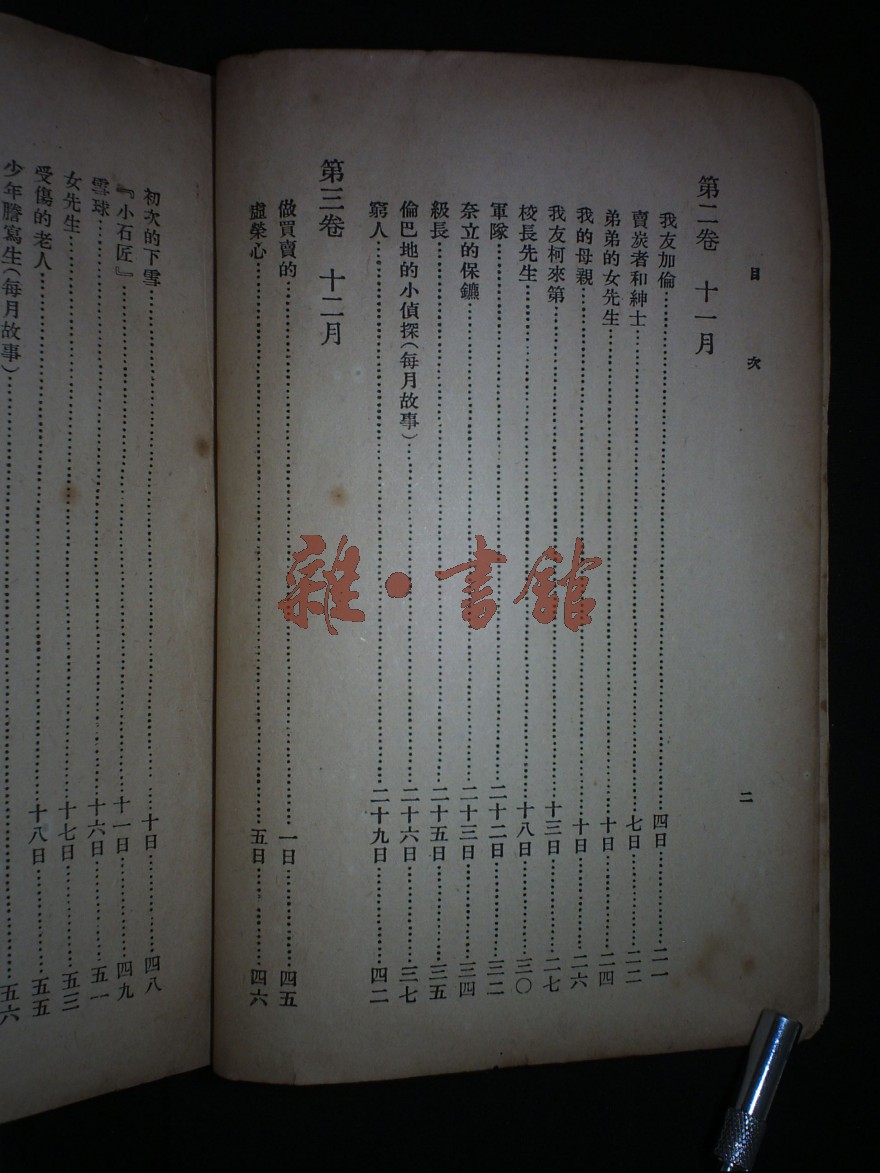 目次
二
第二卷 十一月
我友加倫……四日……二一
賣炭者和紳士……七日……二二
弟弟的女先生……十日……二四
我的母親……十日……二六
我友柯來第……十三日……二七
校長先生……十八日……三〇
軍隊……二十二日……三二
奈立的保鑣……二十三日……三四
級長……二十五日……三五
倫巴地的小偵探(每月故事)……二十六日……三七
窮人……二十九日……四二
第三卷 十二月
做買賣的……一日……四五
虛榮心……五日……四六
初次的下雪……十日……四八
『小石匠』……十一日……四九
雪球……十六日……五一
女先生……十七日……五三
受傷的老人……十八日……五五
少年謄寫生(每月故事)……五六
雜·書館